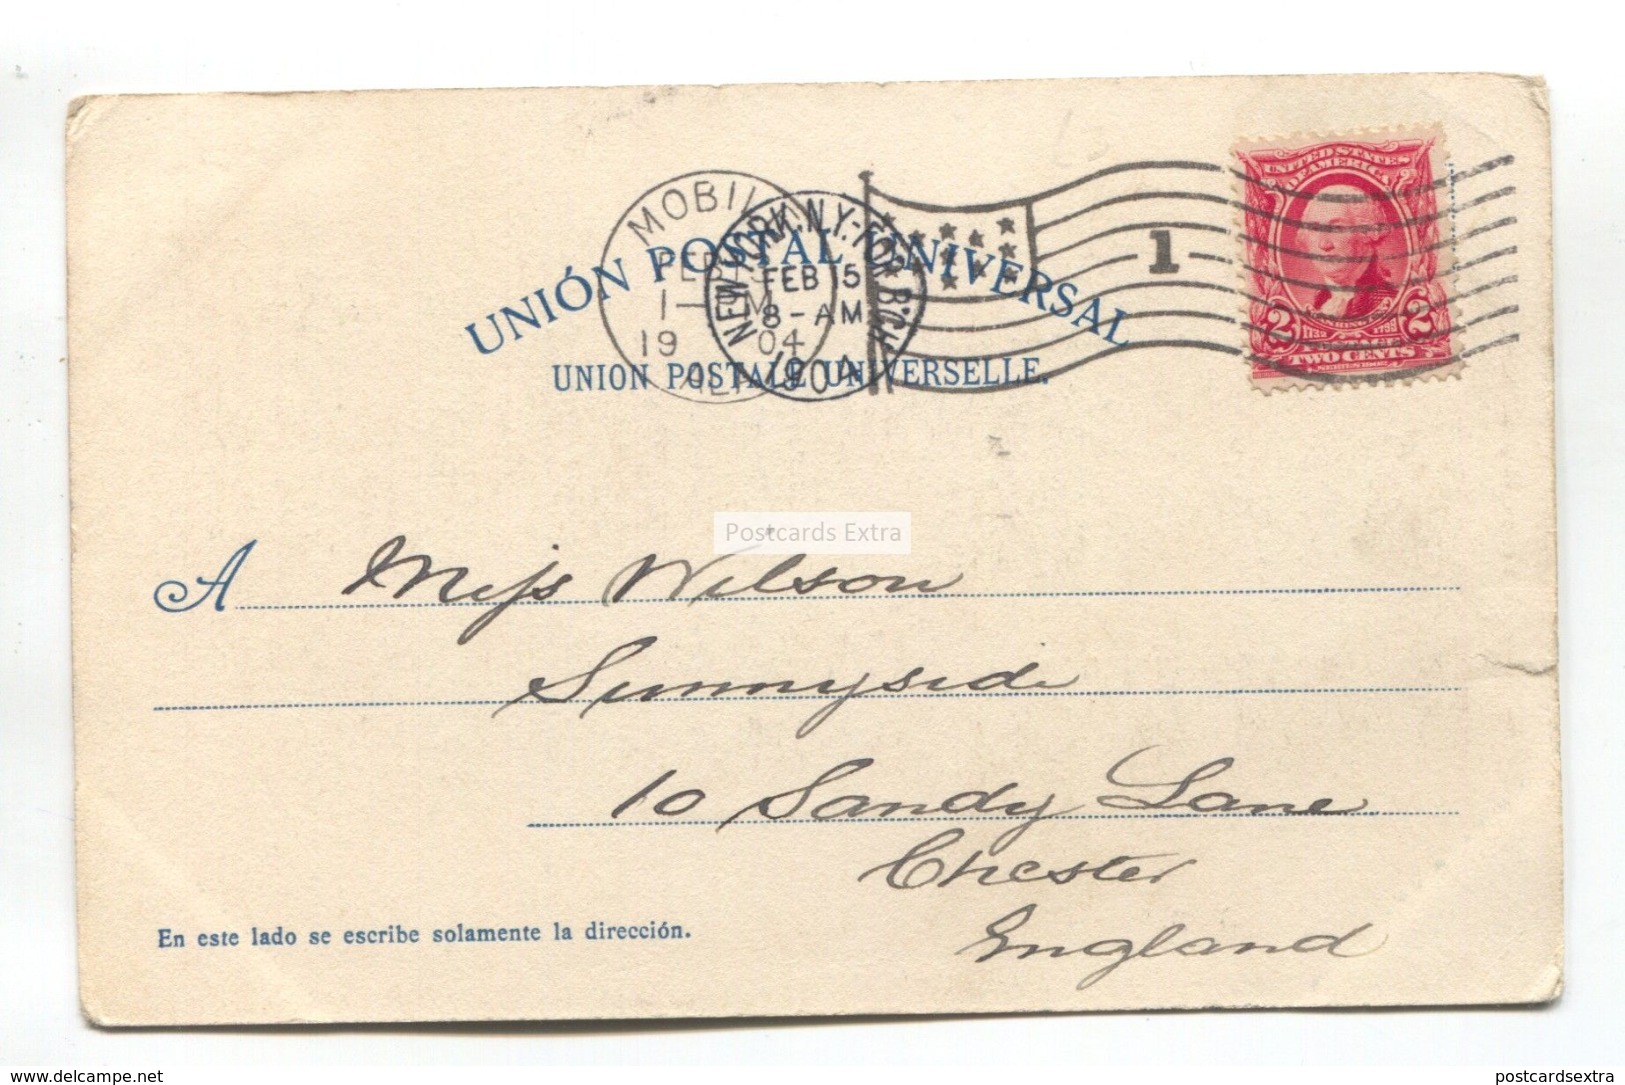 MOBILE
FEB
1-
M
19 04
ALA
NEW YORK, N.Y. FOR B'CH.
FEB 15
8-AM
1904
1
UNITED STATES
OF AMERICA
2 1732 WASHINGTON 1799 2
POSTAGE
TWO CENTS
SERIES 1902
UNIÓN POSTAL UNIVERSAL
UNION POSTALE UNIVERSELLE.
Postcards Extra
A Miss Wilson
Sunnyside
10 Sandy Lane
Chester
England
En este lado se escribe solamente la dirección.
www.delcampe.net
postcardsextra